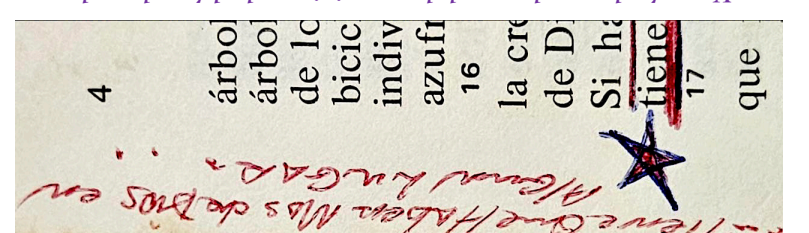 4
árbol
árbol
de lo
bicic
indiv
azufr
16
la cre
de Di
Si ha
tiene
17
que
tiene que Haber Mas de Dios en
Algun LuGAR...